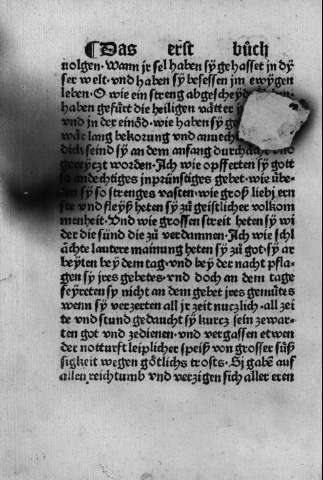 ¶ Das erst bůch
uolgen. Wann jr sel haben sy gehasset in dy
ser welt. vnd haben sy besessen jm ewygen
leben. O wie ein streng abgeschey
haben gefürt die heiligen vätter j
vnd in der einöd. wie haben sy ge
wär lang bekorung vnd anuech
dick seind sy an dem anfang durchächt vnd
gereyczt worden. Ach wie opfferten sy gott
so andechtiges jnprünstiges gebet. wie übe-
ten sy so strenges vasten. wie groß liebi ern
ste vnd fleyß heten sy zů geistlicher volkom
menheit. Vnd wie grossen streit heten sy wi
der die sünd die zů verdamnen. Ach wie schl
ächte lautere mainung heten sy zů got. sy ar
beyten bey dem tag. vnd bey der nacht pfla-
gen sy jres gebetes. vnd doch an dem tage
feyreten sy nicht an dem gebet jres gemütes
wenn sy verzerten all jr zeit nuczlich. all zei
te vnd stund gedaucht sy kurcz sein zewar-
ten got vnd zedienen. vnd vergassen etwen
der notturft leiplicher speiß von grosser süß
sigkeit wegen götlichs trosts. Si gabē auf
allen reichtumb vnd verzigen sich aller eren